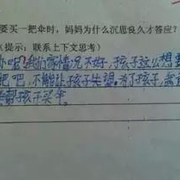 要买一把伞时，妈妈为什么沉思良久才答应？
（提示：联系上下文思考）
情况不好，孩子这么想要
把吧，不能让孩子失望。为了孩子，
给孩子买伞。